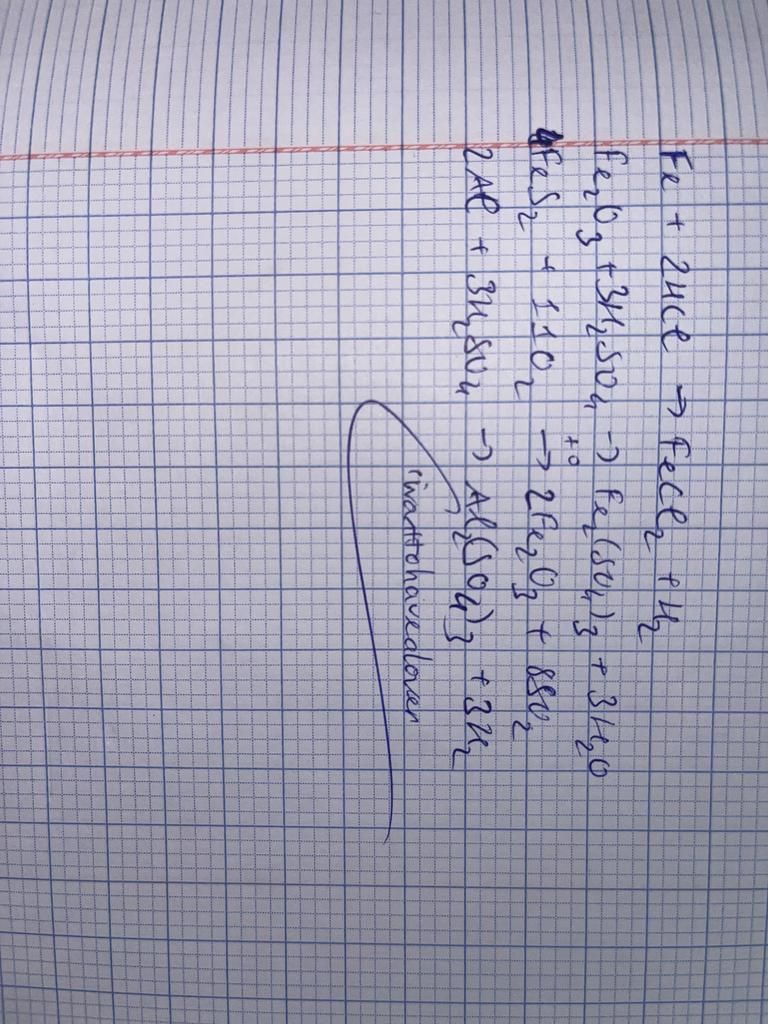 Fe + 2HCl → FeCl₂ + H₂
Fe₂O₃ + 3H₂SO₄ → Fe₂(SO₄)₃ + 3H₂O
t°
4FeS₂ + 11O₂ → 2Fe₂O₃ + 8SO₂
2Al + 3H₂SO₄ → Al₂(SO₄)₃ + 3H₂
"iwanttohavealover